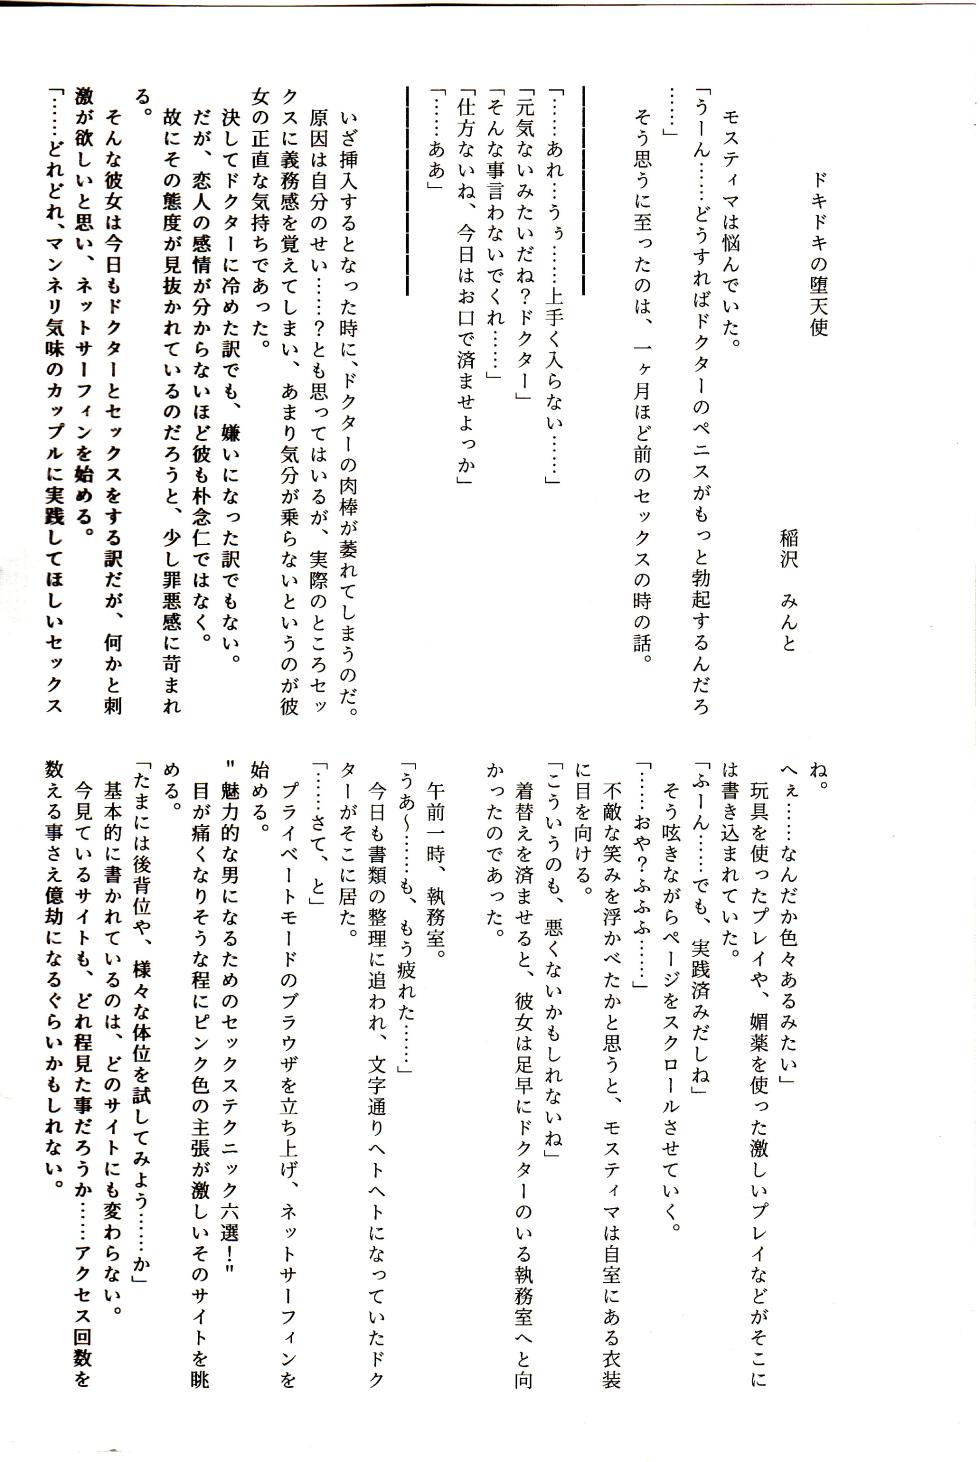 ドキドキの堕天使
稲沢　みんと
モスティマは悩んでいた。
「うーん……どうすればドクターのペニスがもっと勃起するんだろ
……」
そう思うに至ったのは、一ヶ月ほど前のセックスの時の話。
━━━━━━━━━━
「……あれ…うぅ……上手く入らない……」
「元気ないみたいだね？ドクター」
「そんな事言わないでくれ……」
「仕方ないね、今日はお口で済ませよっか」
「……ああ」
━━━━━━━━━━
いざ挿入するとなった時に、ドクターの肉棒が萎れてしまうのだ。
原因は自分のせい……？とも思ってはいるが、実際のところセッ
クスに義務感を覚えてしまい、あまり気分が乗らないというのが彼
女の正直な気持ちであった。
決してドクターに冷めた訳でも、嫌いになった訳でもない。
だが、恋人の感情が分からないほど彼も朴念仁ではなく。
故にその態度が見抜かれているのだろうと、少し罪悪感に苛まれ
る。
そんな彼女は今日もドクターとセックスをする訳だが、何かと刺
激が欲しいと思い、ネットサーフィンを始める。
「……どれどれ、マンネリ気味のカップルに実践してほしいセックス
ね。
へぇ……なんだか色々あるみたい」
玩具を使ったプレイや、媚薬を使った激しいプレイなどがそこに
は書き込まれていた。
「ふーん……でも、実践済みだしね」
そう呟きながらページをスクロールさせていく。
「……おや？ふふふ……」
不敵な笑みを浮かべたかと思うと、モスティマは自室にある衣装
に目を向ける。
「こういうのも、悪くないかもしれないね」
着替えを済ませると、彼女は足早にドクターのいる執務室へと向
かったのであった。
午前一時、執務室。
「うあ～……も、もう疲れた……」
今日も書類の整理に追われ、文字通りヘトヘトになっていたドク
ターがそこに居た。
「……さて、と」
プライベートモードのブラウザを立ち上げ、ネットサーフィンを
始める。
"魅力的な男になるためのセックステクニック六選！"
目が痛くなりそうな程にピンク色の主張が激しいそのサイトを眺
める。
「たまには後背位や、様々な体位を試してみよう……か」
基本的に書かれているのは、どのサイトにも変わらない。
今見ているサイトも、どれ程見た事だろうか……アクセス回数を
数える事さえ億劫になるぐらいかもしれない。